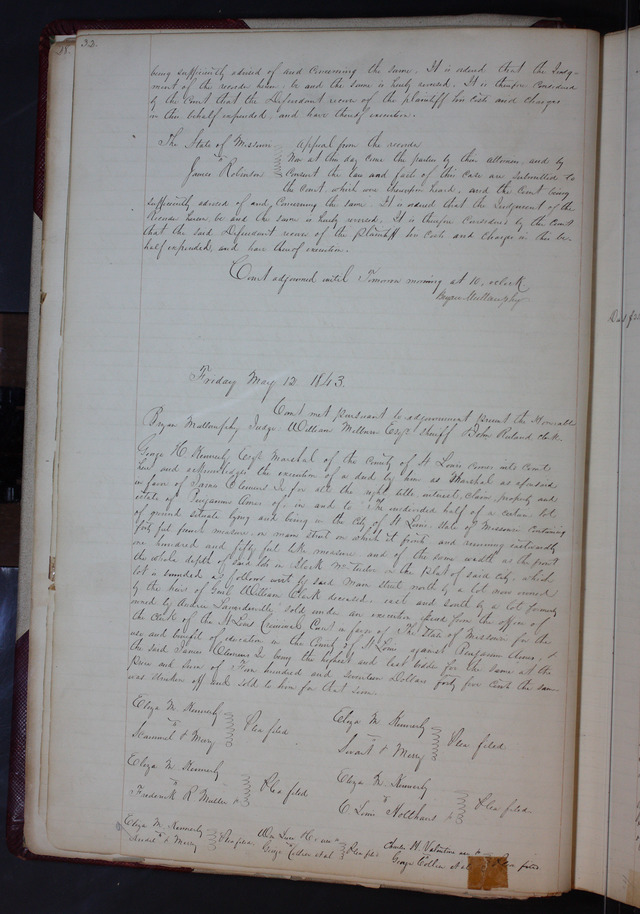 32
being sufficiently advised of and concerning the same. It is ordered that the Judg-
ment of the recorder herein be and the same is hereby reversed. It is therefore considered
by the Court that the Defendant recover of the plaintiff his costs and charges
in this behalf expended, and have thereof execution.
The State of Missouri
vs
James Robinson
Appeal from the recorder
Now at this day come the parties by their attornies, and by
Consent the law and facts of this case are submitted to
the Court, which were thereupon heard, and the Court being
sufficiently advised of and Concerning the same. It is ordered that the Judgement of the
Recorder herein be and the same is hereby reversed. It is therefore Considered by the Court
that the said Defendant recover of the Plaintiff his costs and charges in this be-
half expended, and have thereof execution.
Court adjourned until Tomorrow morning at 10, oclock
Bryan Mullanphy
Friday May 12 1843.
Court met pursuant to adjournment present the Honorable
Bryan Mullanphy Judge. William Milburn Esqr sheriff John Ruland clerk.
George H. Kennerly Esqr Marshal of the County of St Louis comes into Court
here and acknowledges the execution of a deed by him as Marshal as aforesaid
in favor of James Clemens Jr for all the right title interest, claim, property and
estate of Benjamin Ames of, in and to The undivided half of a certain lot
of ground situate lying and being in the City of St Louis, state of Missouri Containing
forty feet french measure, on main street on which it fronts and running eastwardly
one hundred and fifty feet like measure and of the same width as the front
the whole depth of said lot in Block No twelve in the plat of said city, which
lot is bounded as follows west by said Main street north by a lot now owned
by the heirs of Genl William Clark deceased, east and South by a lot formerly
owned by Andre Landreville sold under an execution issued from the office of
the Clerk of the St Louis Criminal Court in favor of The State of Missouri for the
use and benefit of education in the County of St Louis against Benjamin Ames, &
the said James Clemens Jr being the highest and last bidder for the same at the
price and sum of Five hundred and seventeen Dollars forty five cents the same
was stricken off and sold to him for that sum.
Eliza M. Kennerly
vs
& Merry
Plea filed
Eliza M. Kennerly
vs
& Merry
Plea filed
Eliza M. Kennerly
vs
Frederick R
Plea filed
Eliza M. Kennerly
vs
C Louis
Plea filed
Eliza M. Kennerly
vs
& Merry
Plea filed
Wm
vs
George Collier et al
Plea filed
Charles H. Valentine
vs
George Collier et al
Plea filed